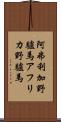 阿弗利加野
驢馬アフリ
カ野驢馬